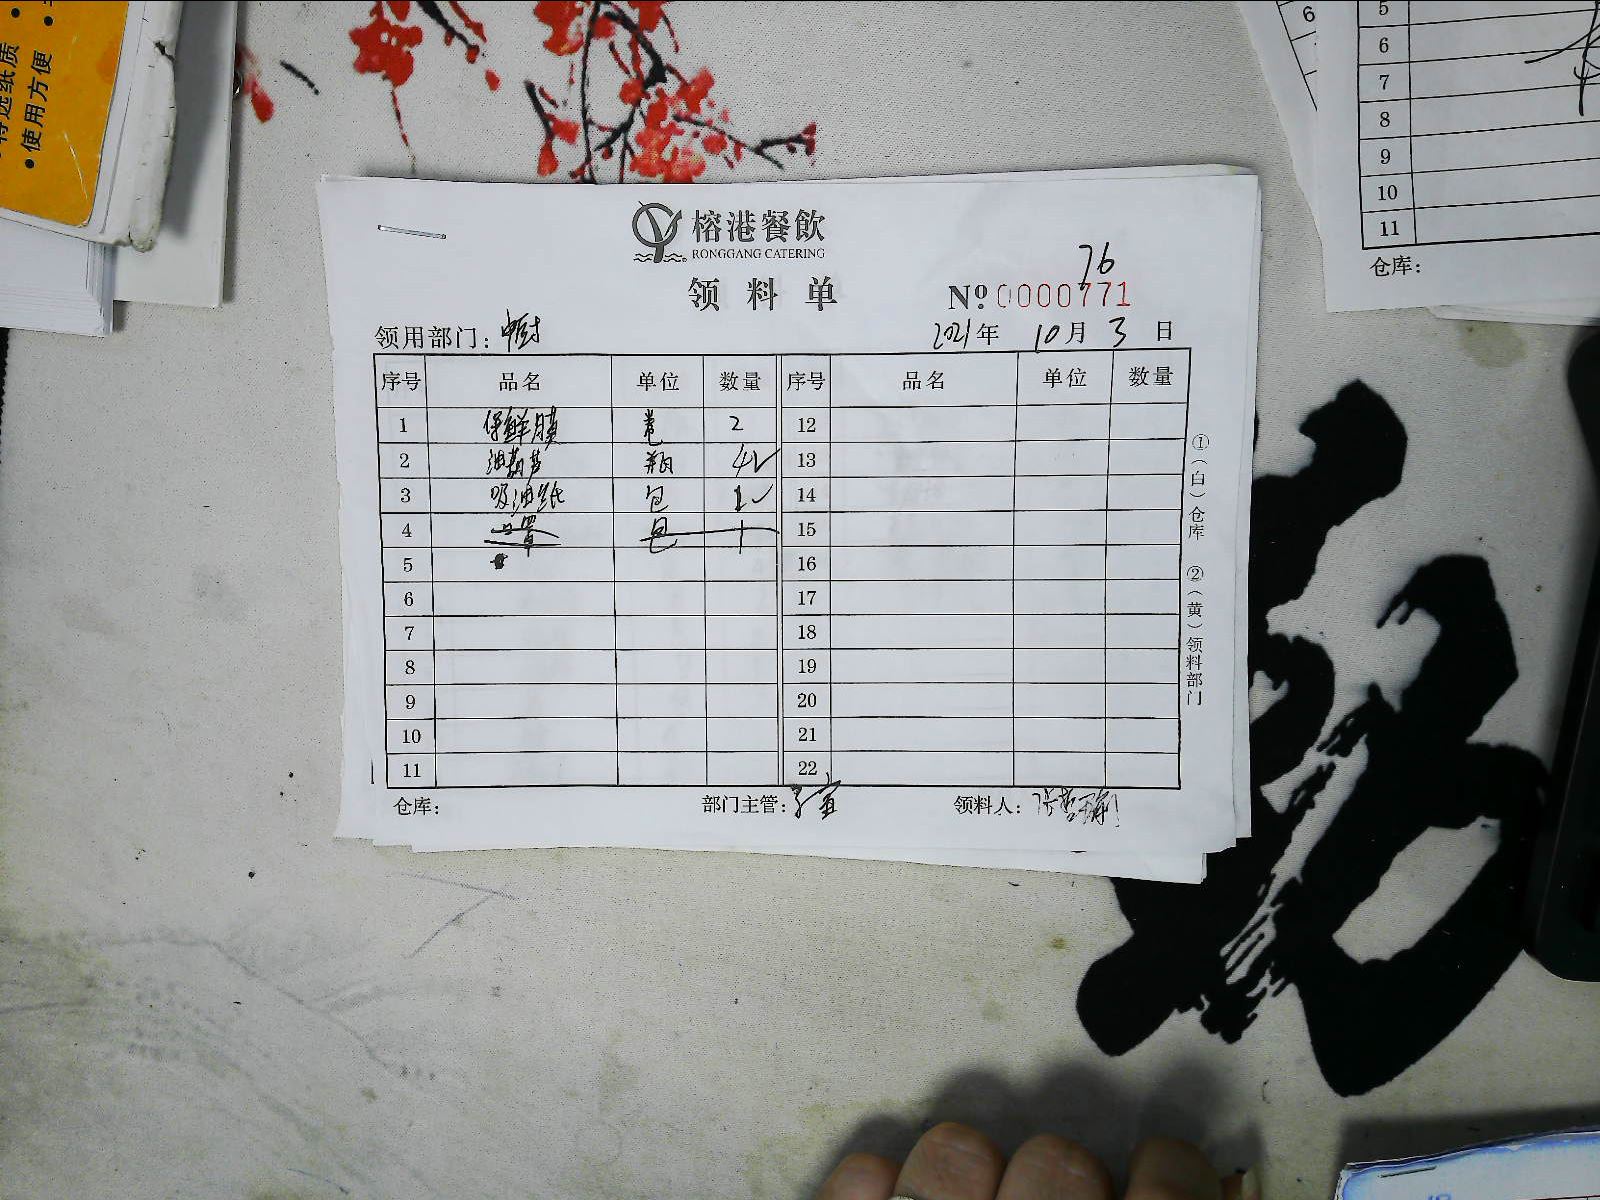 特选纸质
•使用方便
6
5
6
7
8
9
10
11
仓库：
榕港餐飲
RONGGANG CATERING
领料单
76
№ 0000771
领用部门：中厨
2021年 10月 3日
序号 品名 单位 数量 序号 品名 单位 数量
1 保鲜膜 卷 2 12
2 油葫芦 瓶 4 13
3 吸油纸 包 1 14
4 口罩 包 1 15
5 16
6 17
7 18
8 19
9 20
10 21
11 22
①（白）仓库 ②（黄）领料部门
仓库： 部门主管： 领料人：